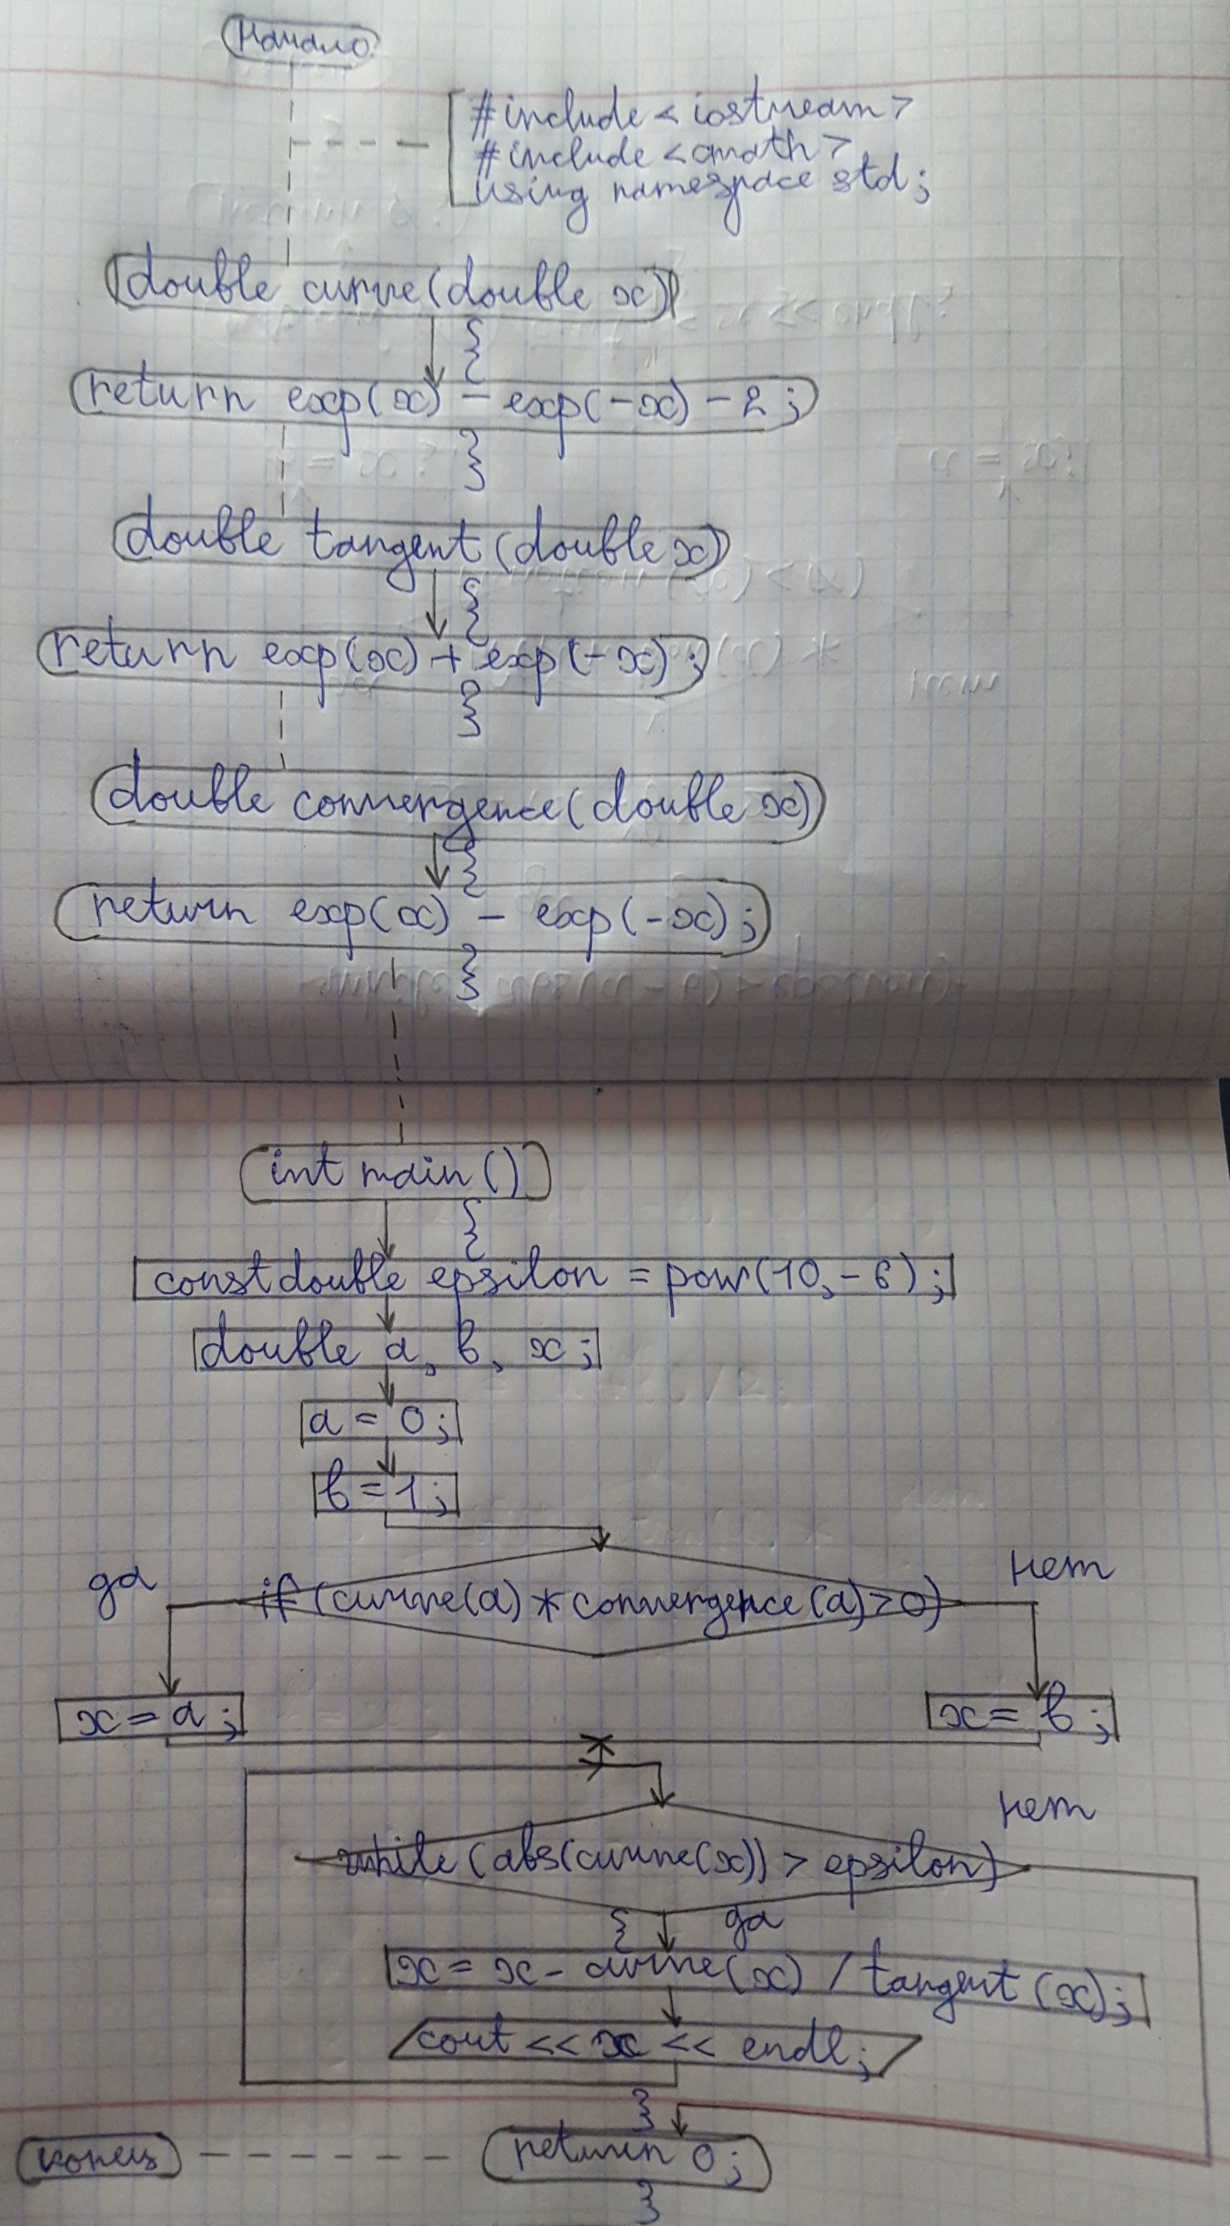 Начало
#include <iostream>
#include <cmath>
using namespace std;
double curve(double x)
{
return exp(x) - exp(-x) - 2;
}
double tangent(double x)
{
return exp(x) + exp(-x);
}
double convergence(double x)
{
return exp(x) - exp(-x);
}
int main()
{
const double epsilon = pow(10, -6);
double a, b, x;
a = 0;
b = 1;
да if (curve(a) * convergence(a) > 0) нет
x = a; x = b;
нет
while (abs(curve(x)) > epsilon)
{ да
x = x - curve(x) / tangent(x);
cout << x << endl;
}
конец return 0;
}